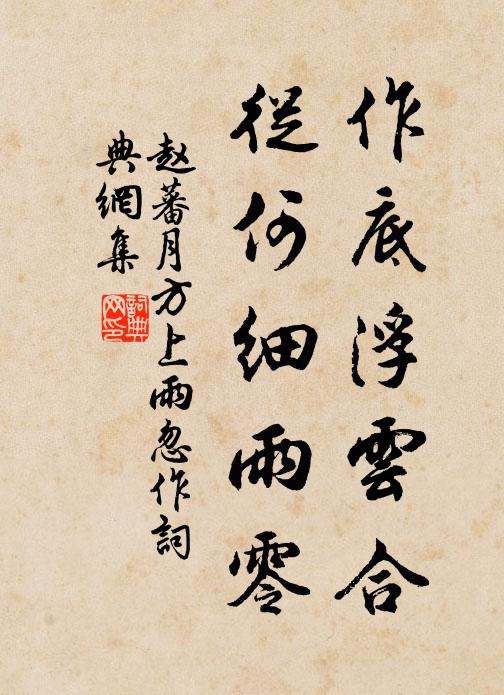 作底浮雲合
從何細雨零
赵蕃月方上雨忽作詞
典網集
詞典
网印